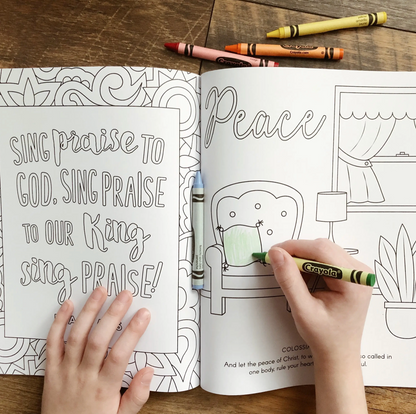 SING praise TO
GOD, SING PRAISE
TO OUR King
sing PRAISE!
Peace
Crayola
COLOSS
And let the peace of Christ, to w so called in
one body, rule your hear ul.